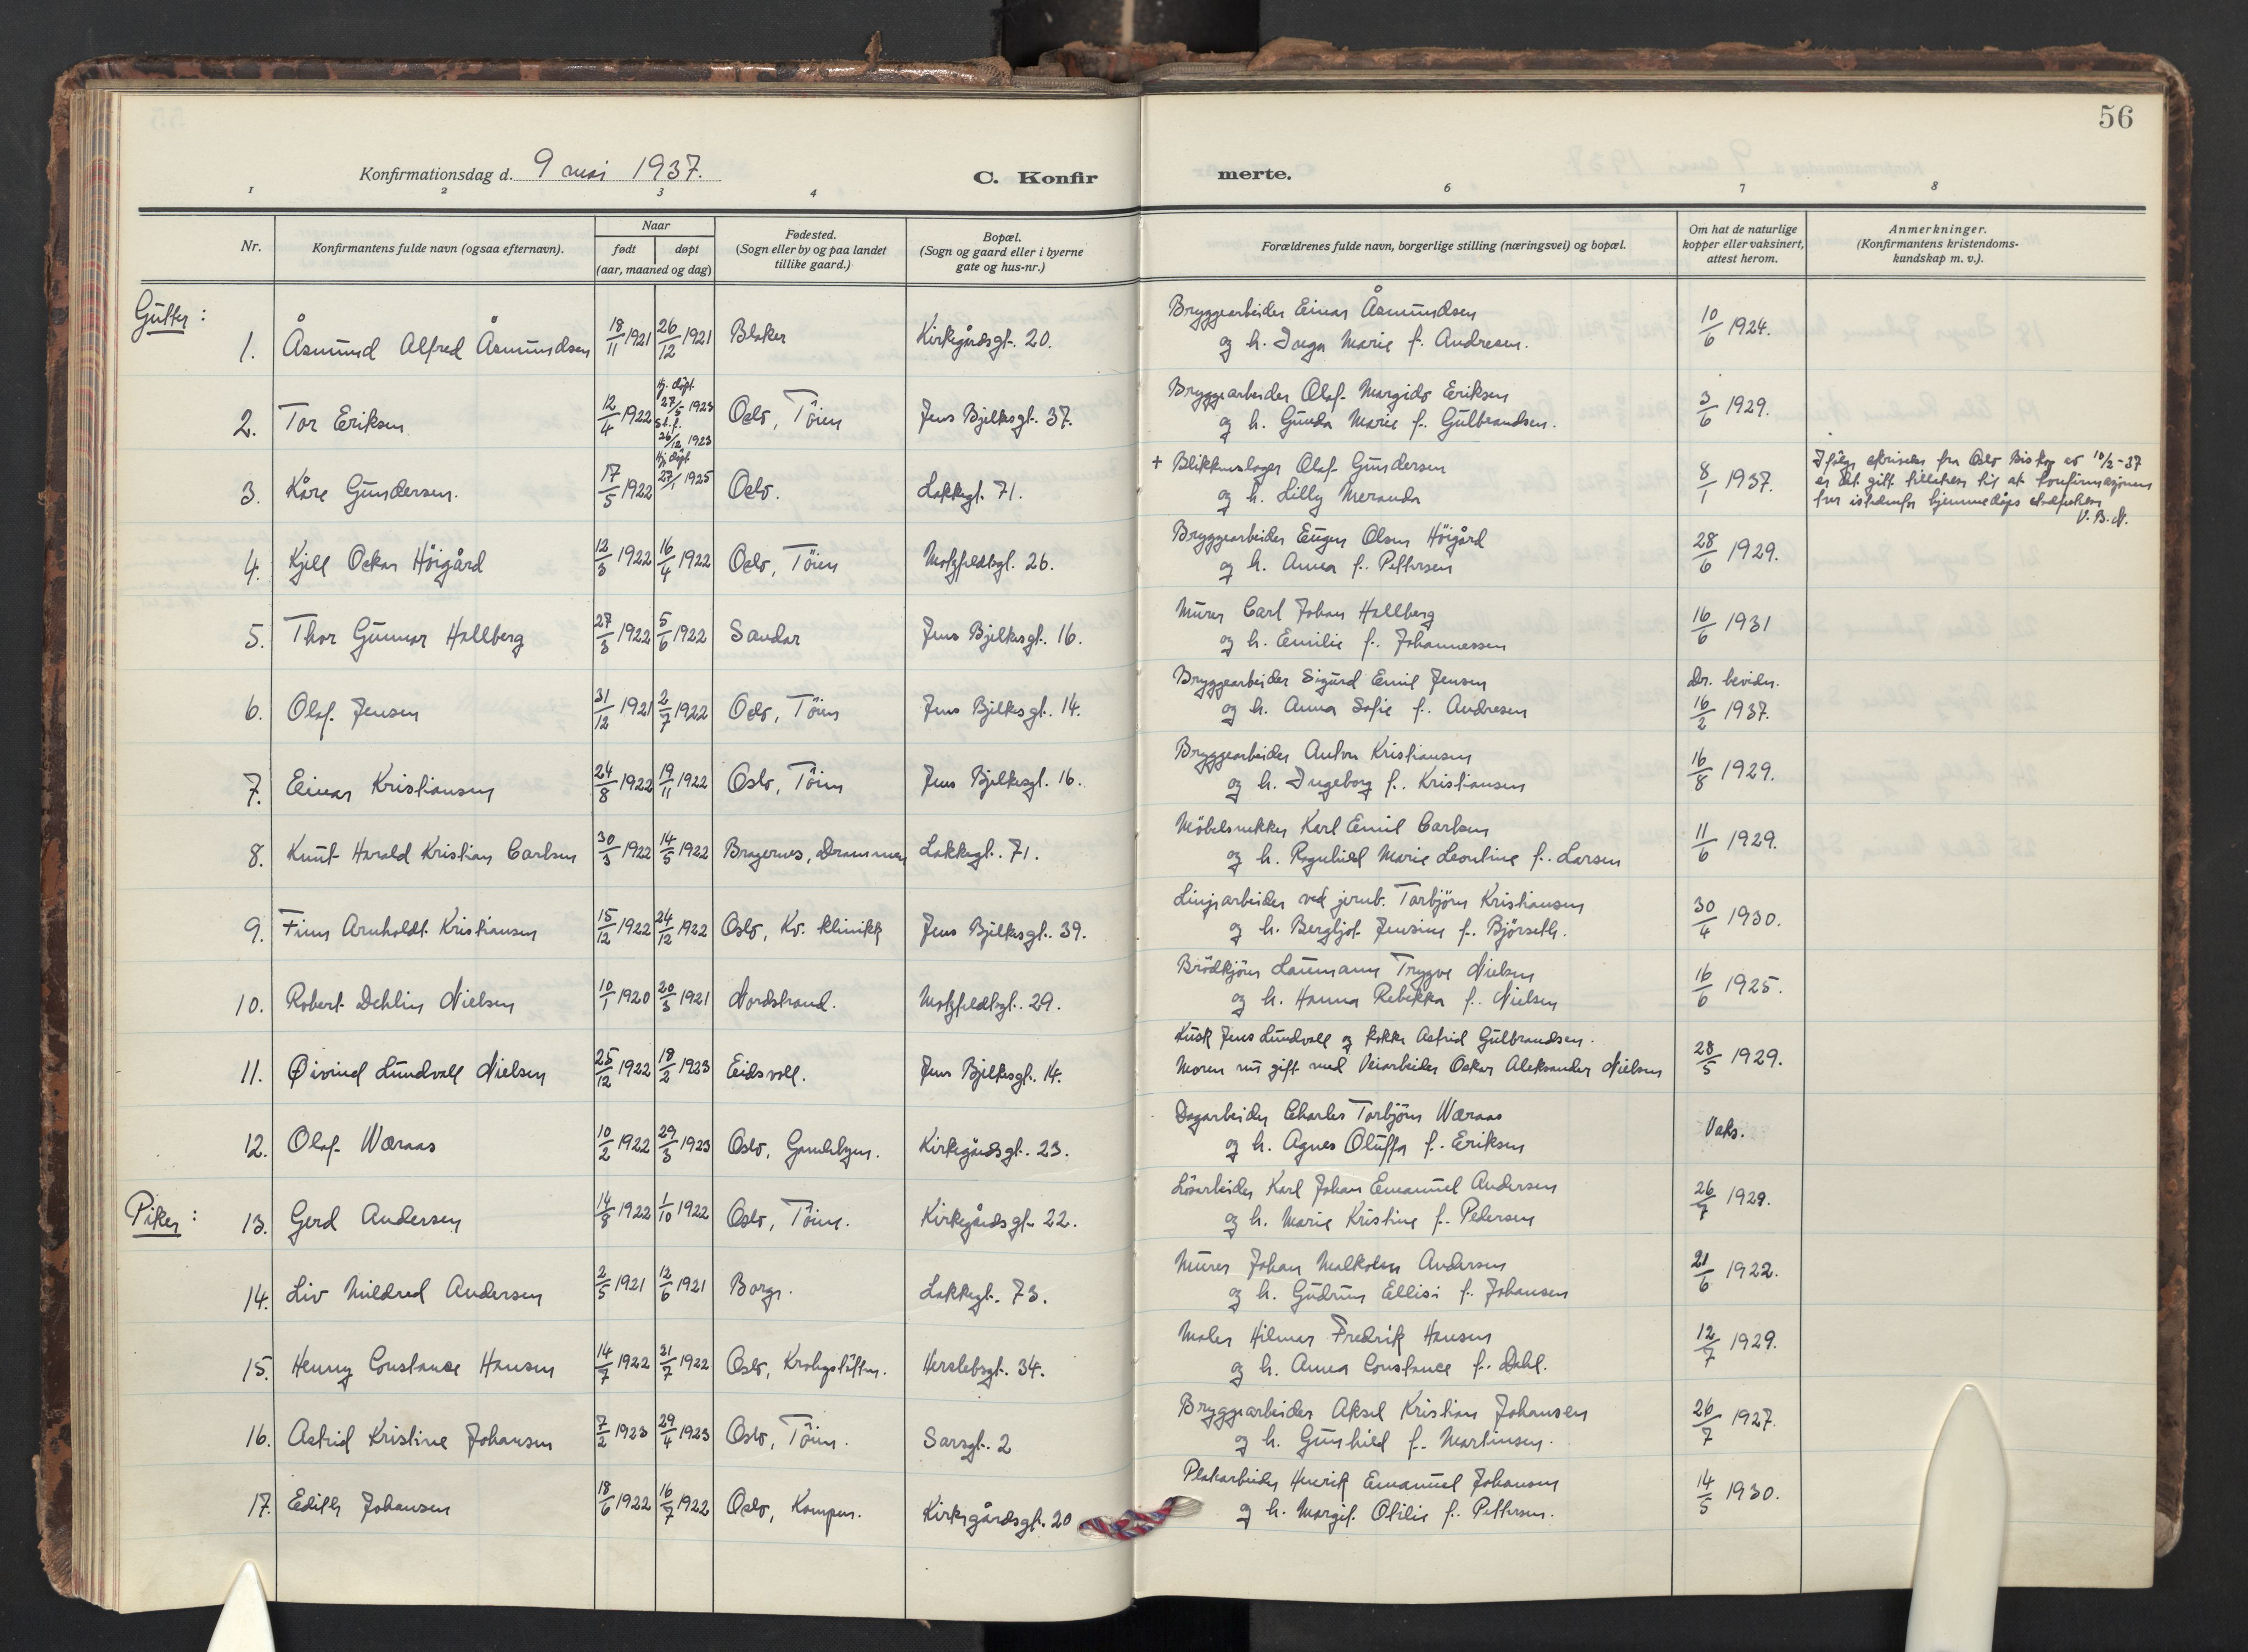 56
Konfirmationsdag d. 9 mai 1937.
C. Konfirmerte.
1 2 3 4 6 7 8
Nr.
Konfirmantens fulde navn (ogsaa efternavn).
Naar
født døpt
(aar, maaned og dag)
Fødested.
(Sogn eller by og paa landet
tillike gaard.)
Bopæl.
(Sogn og gaard eller i byerne
gate og hus-nr.)
Forældrenes fulde navn, borgerlige stilling (næringsvei) og bopæl.
Om hat de naturlige
kopper eller vaksinert,
attest herom.
Anmerkninger.
(Konfirmantens kristendoms-
kundskap m. v.).
Gutter:
1. Åsmund Alfred Åsmundsen 18/11 1921 26/12 1921 Blaker Kirkegårdsgt. 20. Bryggearbeider Einar Åsmundsen 10/6 1924.
og h. Inga Marie f. Andresen.
2. Tor Eriksen 12/4 1922 Hj. døpt 27/5 1923 st. f. 26/12 1923 Oslo, Töien Jens Bjelkesgt. 37. Bryggearbeider Olaf Margido Eriksen 3/6 1929.
og h. Gunda Marie f. Gulbrandsen.
3. Kåre Gundersen. 17/5 1922 Hj. døpt 27/1 1925 Oslo. Lakkegt. 71. + Blikkenslager Olaf Gundersen 8/1 1937.
og h. Lilly Meranda
Ifölge skrivelse fra Oslo Biskop av 10/2-37
er det gitt tillatelse til at konfirmasjonen
trer istedenfor hjemmedåps stadfestelse
V. B. N.
4. Kjell Oskar Höigård 12/3 1922 16/4 1922 Oslo, Töien Motzfeldtsgt. 26. Bryggearbeider Eugen Olsen Höigård 28/6 1929.
og h. Anna f. Pettersen
5. Thor Gunnar Hallberg 27/3 1922 5/6 1922 Sandar Jens Bjelkesgt. 16. Murer Carl Johan Hallberg 16/6 1931
og h. Emilie f. Johannessen
6. Olaf Jensen 31/12 1921 2/7 1922 Oslo, Töien Jens Bjelkesgt. 14. Bryggearbeider Sigurd Emil Jensen Dr. bevidn.
og h. Anna Sofie f. Andresen 16/2 1937.
7. Einar Kristiansen 24/8 1922 19/11 1922 Oslo, Töien Jens Bjelkesgt. 16. Bryggearbeider Anton Kristiansen 16/8 1929.
og h. Ingeborg f. Kristiansen
8. Knut Harald Kristian Carlsen 30/3 1922 14/5 1922 Bragernes, Drammen Lakkegt. 71. Möbelsnekker Karl Emil Carlsen 11/6 1929.
og h. Ragnhild Marie Leontine f. Larsen
9. Finn Arnholdt Kristiansen 15/12 1922 24/12 1922 Oslo, Kv. klinikk Jens Bjelkesgt. 39. Linjearbeider ved jernb. Torbjörn Kristiansen 30/4 1930.
og h. Bergljot Jensine f. Björseth.
10. Robert Dehlin Nielsen 10/1 1920 20/3 1921 Nordstrand. Motzfeldtsgt. 29. Brödkjörer Laumann Trygve Nielsen 16/6 1925.
og h. Hanna Rebekka f. Nielsen
11. Øivind Lundvall Nielsen 25/12 1922 18/2 1923 Eidsvoll. Jens Bjelkesgt. 14. Kusk Jens Lundvall og kokke Astrid Gulbrandsen. 28/5 1929.
Moren nu gift med Veiarbeider Oskar Aleksander Nielsen
12. Olaf Wæraas 10/2 1922 29/3 1923 Oslo, Gamlebyen. Kirkegårdsgt. 23. Dagarbeider Charles Torbjörn Wæraas Vaks.
og h. Agnes Oluffa f. Eriksen
Piker:
13. Gerd Andersen 14/8 1922 1/10 1922 Oslo, Töien. Kirkegårdsgt. 22. Lösarbeider Karl Johan Emanuel Andersen 26/7 1929.
og h. Marie Kristine f. Pedersen
14. Liv Mildred Andersen 2/5 1921 12/6 1921 Borge. Lakkegt. 73. Murer Johan Malkolm Andersen 21/6 1922.
og h. Gudrun Ellisi f. Johansen
15. Henny Constance Hansen 14/7 1922 21/7 1922 Oslo, Krohgstötten. Herslebsgt. 34. Maler Hilmar Fredrik Hansen 12/7 1929.
og h. Anna Constance f. Dahl.
16. Astrid Kristine Johansen 7/2 1923 29/4 1923 Oslo, Töien. Sarsgt. 2 Bryggearbeider Aksel Kristian Johansen 26/7 1927.
og h. Gunhild f. Martinsen.
17. Edith Johansen 18/6 1922 16/7 1922 Oslo, Kampen. Kirkegårdsgt. 20 Platearbeider Henrik Emanuel Johansen 14/5 1930.
og h. Margit Otilie f. Pettersen.